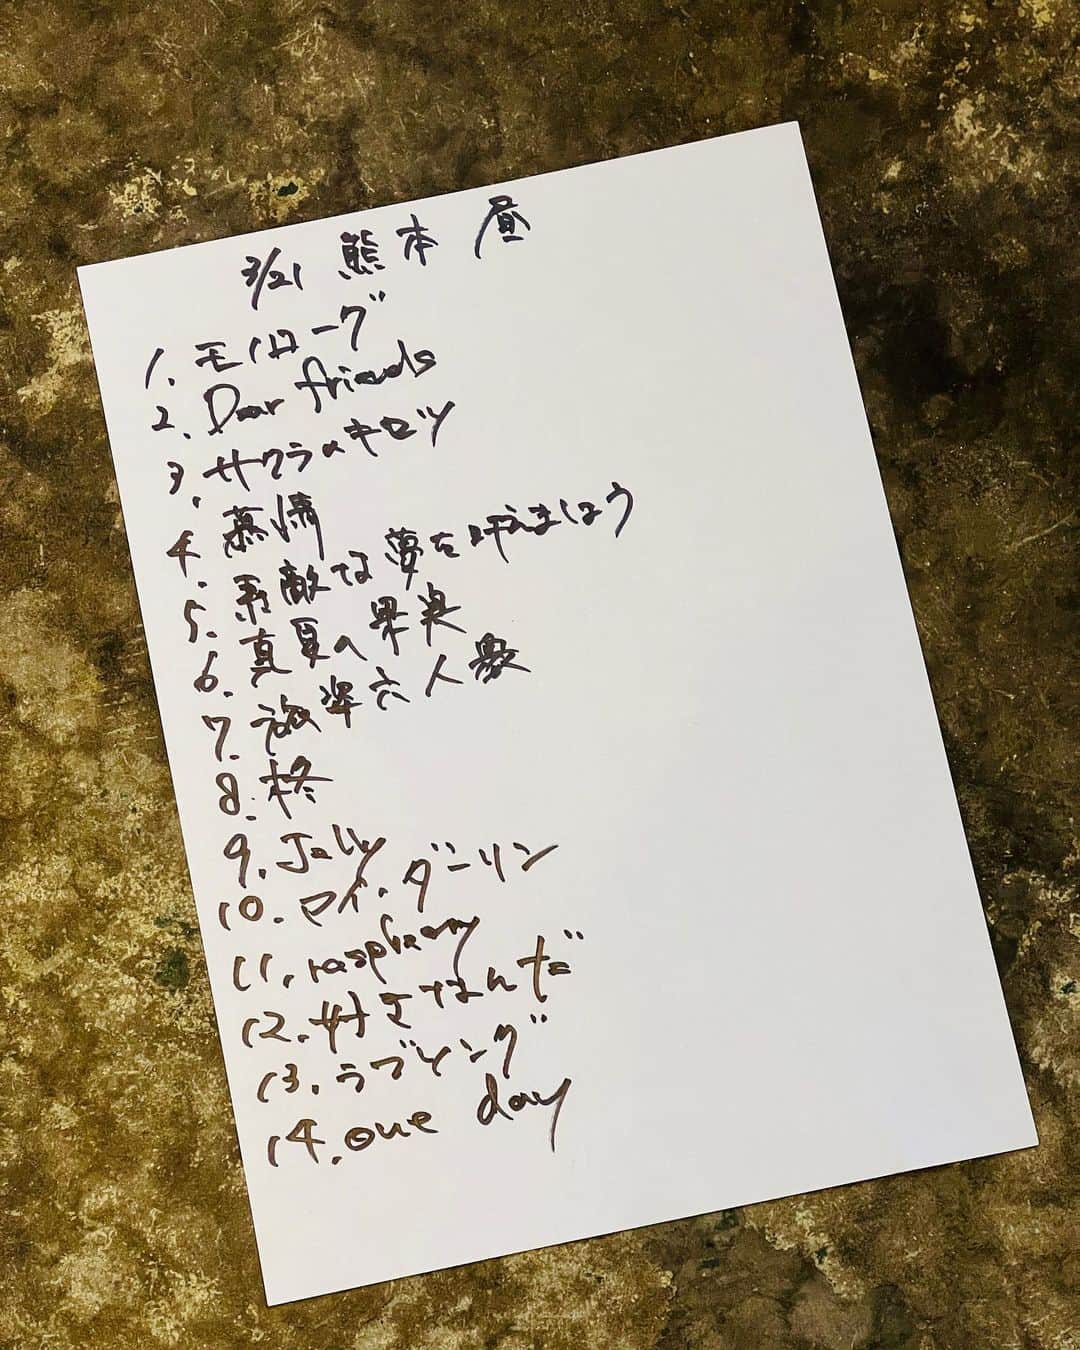 3/21 熊本 昼
1. モノローグ
2. Dear friends
3. サクラのキセツ
4. 慕情
5. 素敵な夢を叶えましょう
6. 真夏の果実
7. 旅姿六人衆
8. 柊
9. Jelly
10. マイ・ダーリン
11. raspberry
12. 好きなんだ
13. ラブソング
14. one day